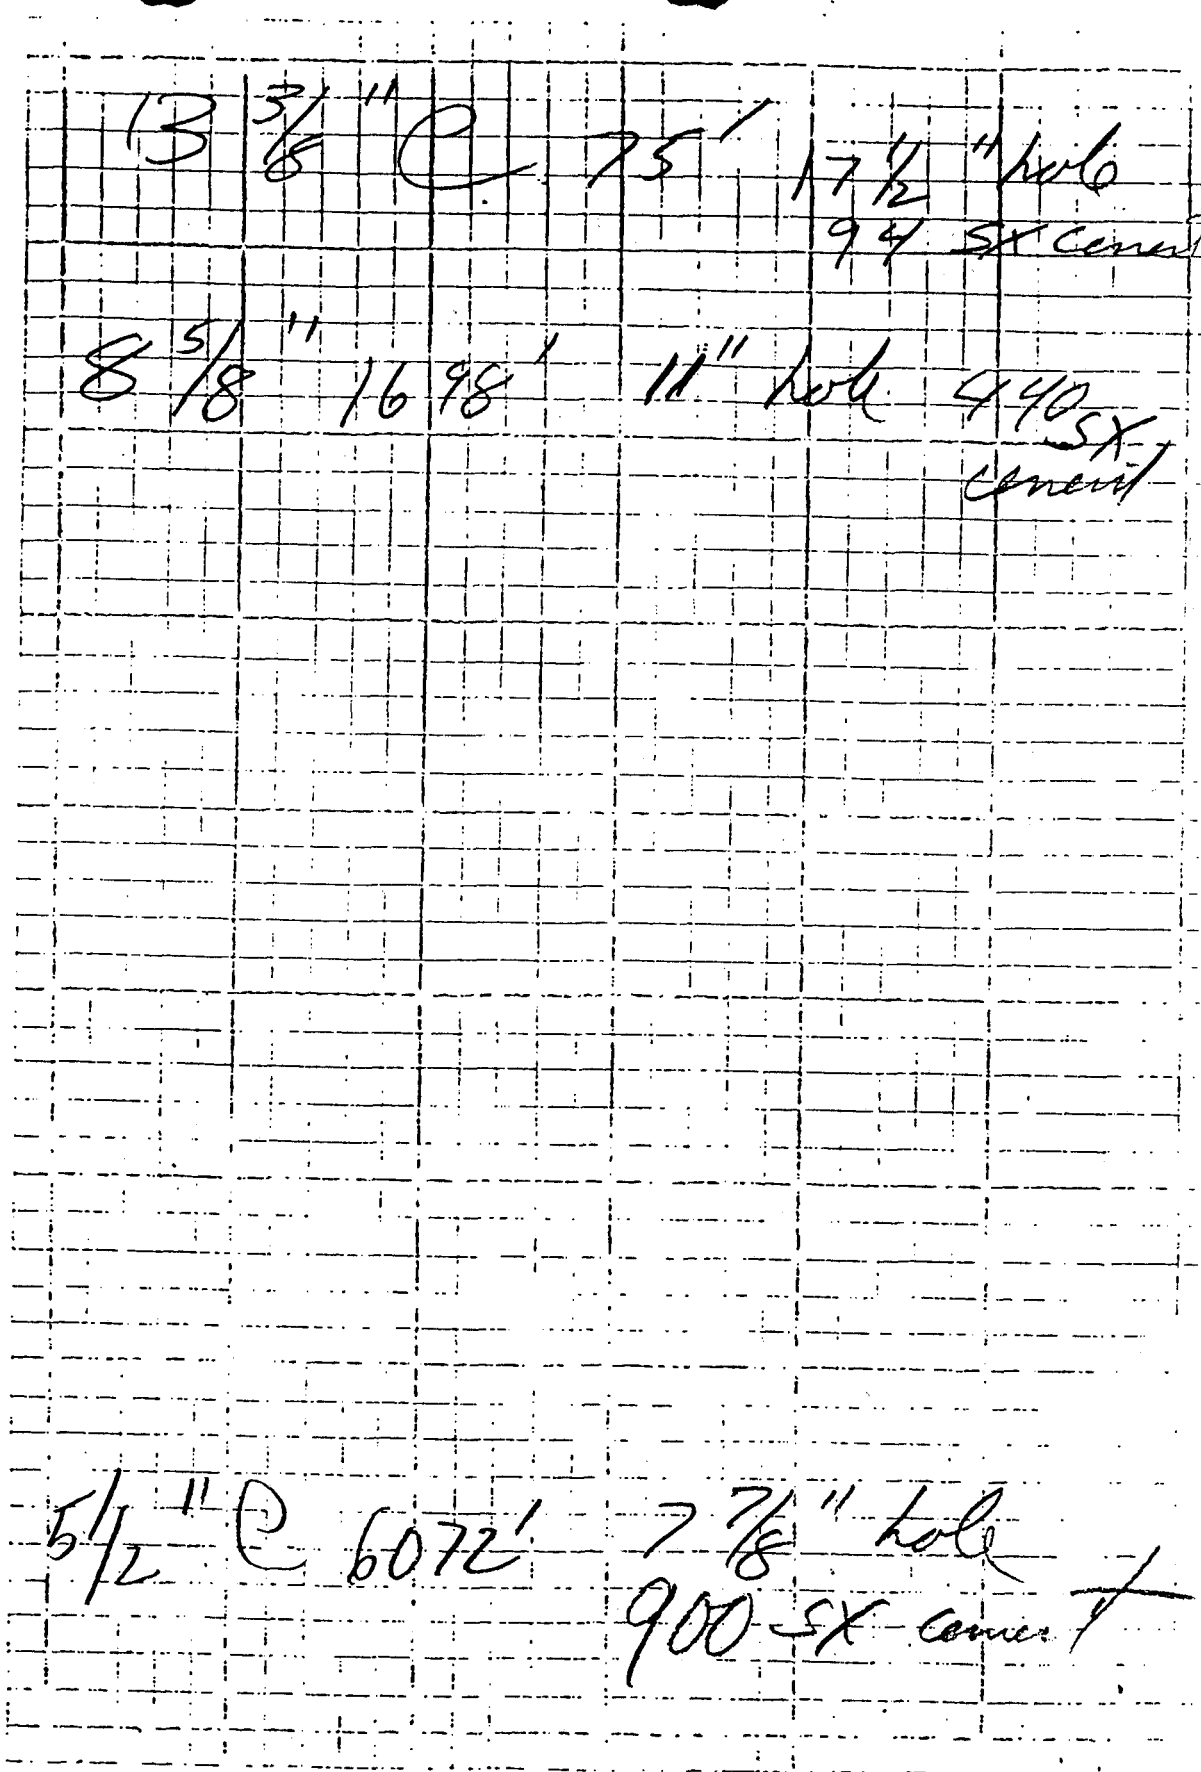 13 3/8" @ 75' 17 1/2" hole
94 SX cement
8 5/8" 1698' 11" hole 440
SX
cement
5 1/2" @ 6072' 7 7/8" hole
900 SX cement